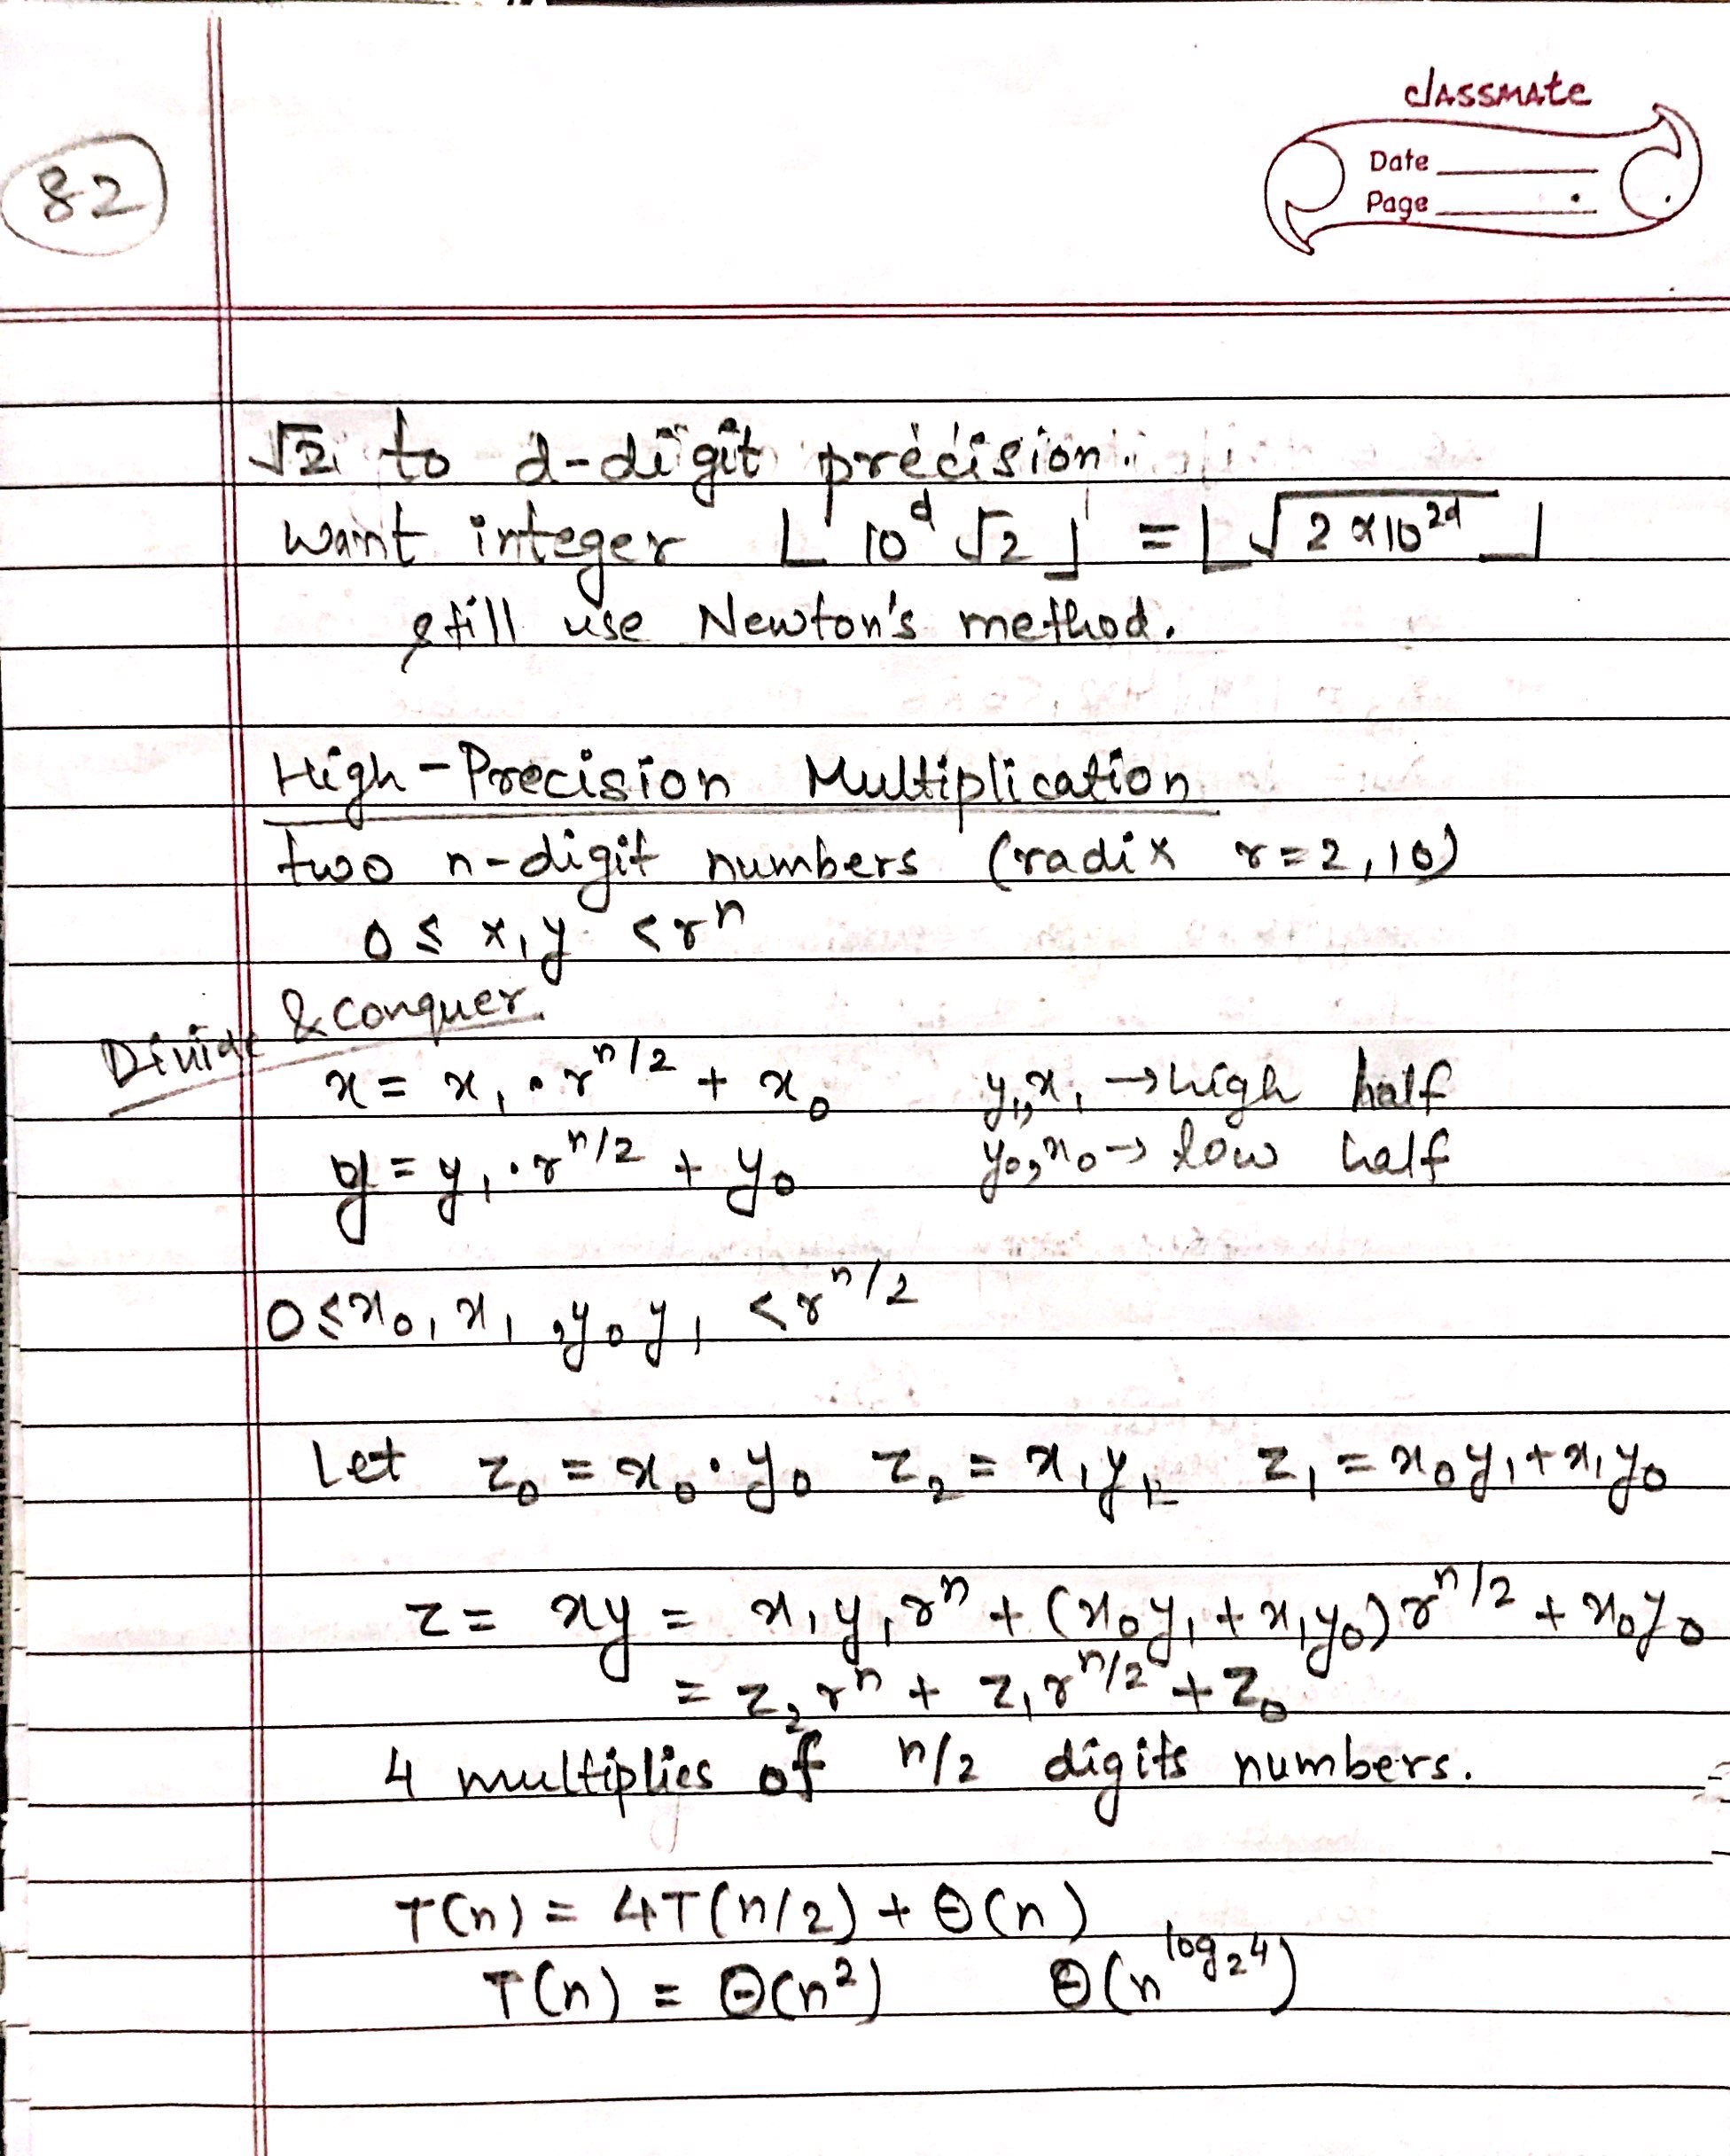 classmate
Date
Page
82
√2 to d-digit precision.
want integer ⌊10^d √2⌋ = ⌊√(2×10^2d)⌋
still use Newton's method.
High-Precision Multiplication
two n-digit numbers (radix r=2,10)
0 ≤ x,y < r^n
Divide & conquer
x = x₁·r^n/2 + x₀ y₁,x₁ → high half
y = y₁·r^n/2 + y₀ y₀,x₀ → low half
0 ≤ x₀, x₁, y₀ y₁ < r^n/2
Let z₀ = x₀·y₀ z₂ = x₁y₁ z₁ = x₀y₁+x₁y₀
z = xy = x₁y₁r^n + (x₀y₁+x₁y₀)r^n/2 + x₀y₀
= z₂r^n + z₁r^n/2 + z₀
4 multiplies of n/2 digits numbers.
T(n) = 4T(n/2) + Θ(n)
T(n) = Θ(n²) Θ(n^log₂4)